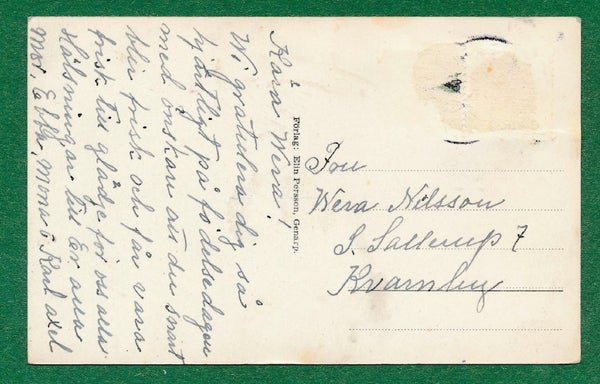 Kära Wera!
Wi gratulera dig så
hjärtligt på födelsedagen
med önskan att du snart
blir frisk och får vara
frisk till glädje för oss alla
Hälsningar till Er alla
Mor, Ebba, Mona o Karl axel
Förlag: Elin Persson, Genarp.
Fru
Wera Nilsson
S. Sallerup 7
Kvarnby